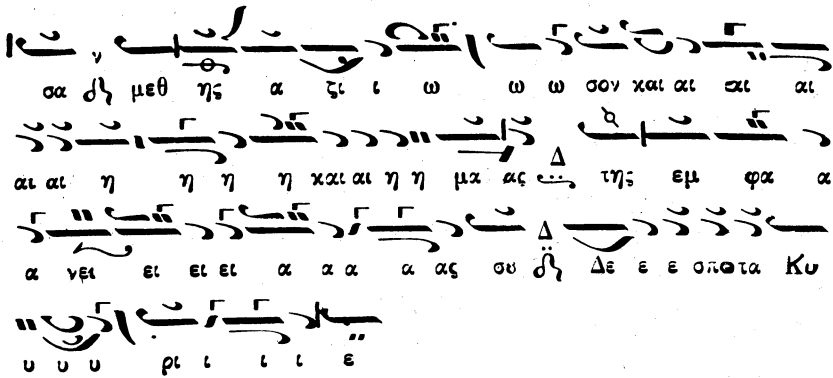 σα μεθ ης α ζι ι ω ω ω σον και αι αι αι
αι αι η η η η και αι η η μα ας Δ της εμ φα α
α νει ει ει ει α α α α ας συ Δ Δε ε ε σποτα Κυ
υ υ υ ρι ι ι ι ε